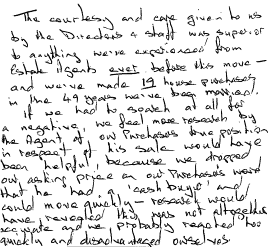 The courtesy and care given to us
by the Directors & staff was superior
to anything we've experienced from
Estate Agents ever before this move -
and we've made 19 house purchases
in the 49 years we've been married.
If we had to search at all for
a negative, we feel more research by
the Agent of our Purchasers true position
in respect of his sale would have
been helpful, because we dropped
our asking price on our Purchasers word
that he had a 'cash buyer' and
could move quickly - research would
have revealed this was not altogether
accurate and we probably reached too
quickly and disadvantaged ourselves